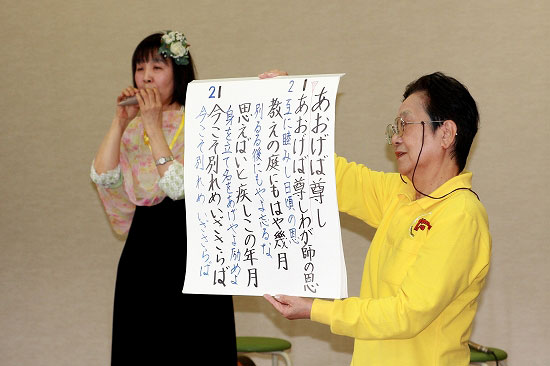 あおげば尊し
1 あおげば尊しわが師の恩
2 互に睦みし日頃の恩
教えの庭にもはや幾月
別るる後にもやよ忘るな
思えばいと疾しこの年月
身を立て名をあげやよ励めよ
1 今こそ別れめいざさらば
2 今こそ別れめいざさらば